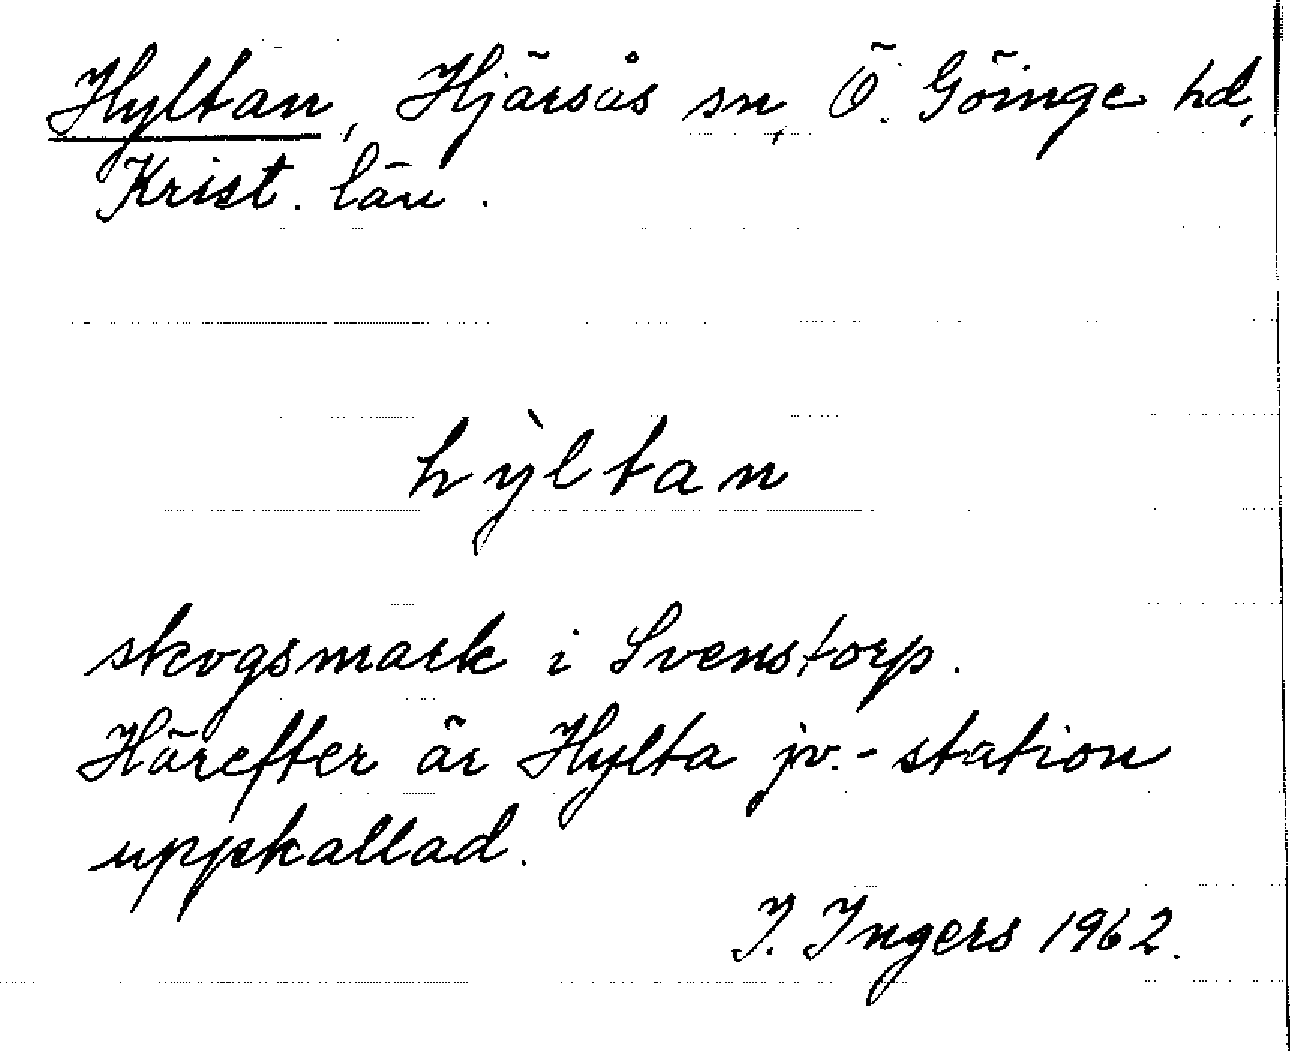 Hyltan, Hjärsås sn, Ö. Göinge hd,
Krist. län.
hỳltan
skogsmark i Svenstorp.
Härefter är Hylta jv.-station
uppkallad.
I. Ingers 1962.